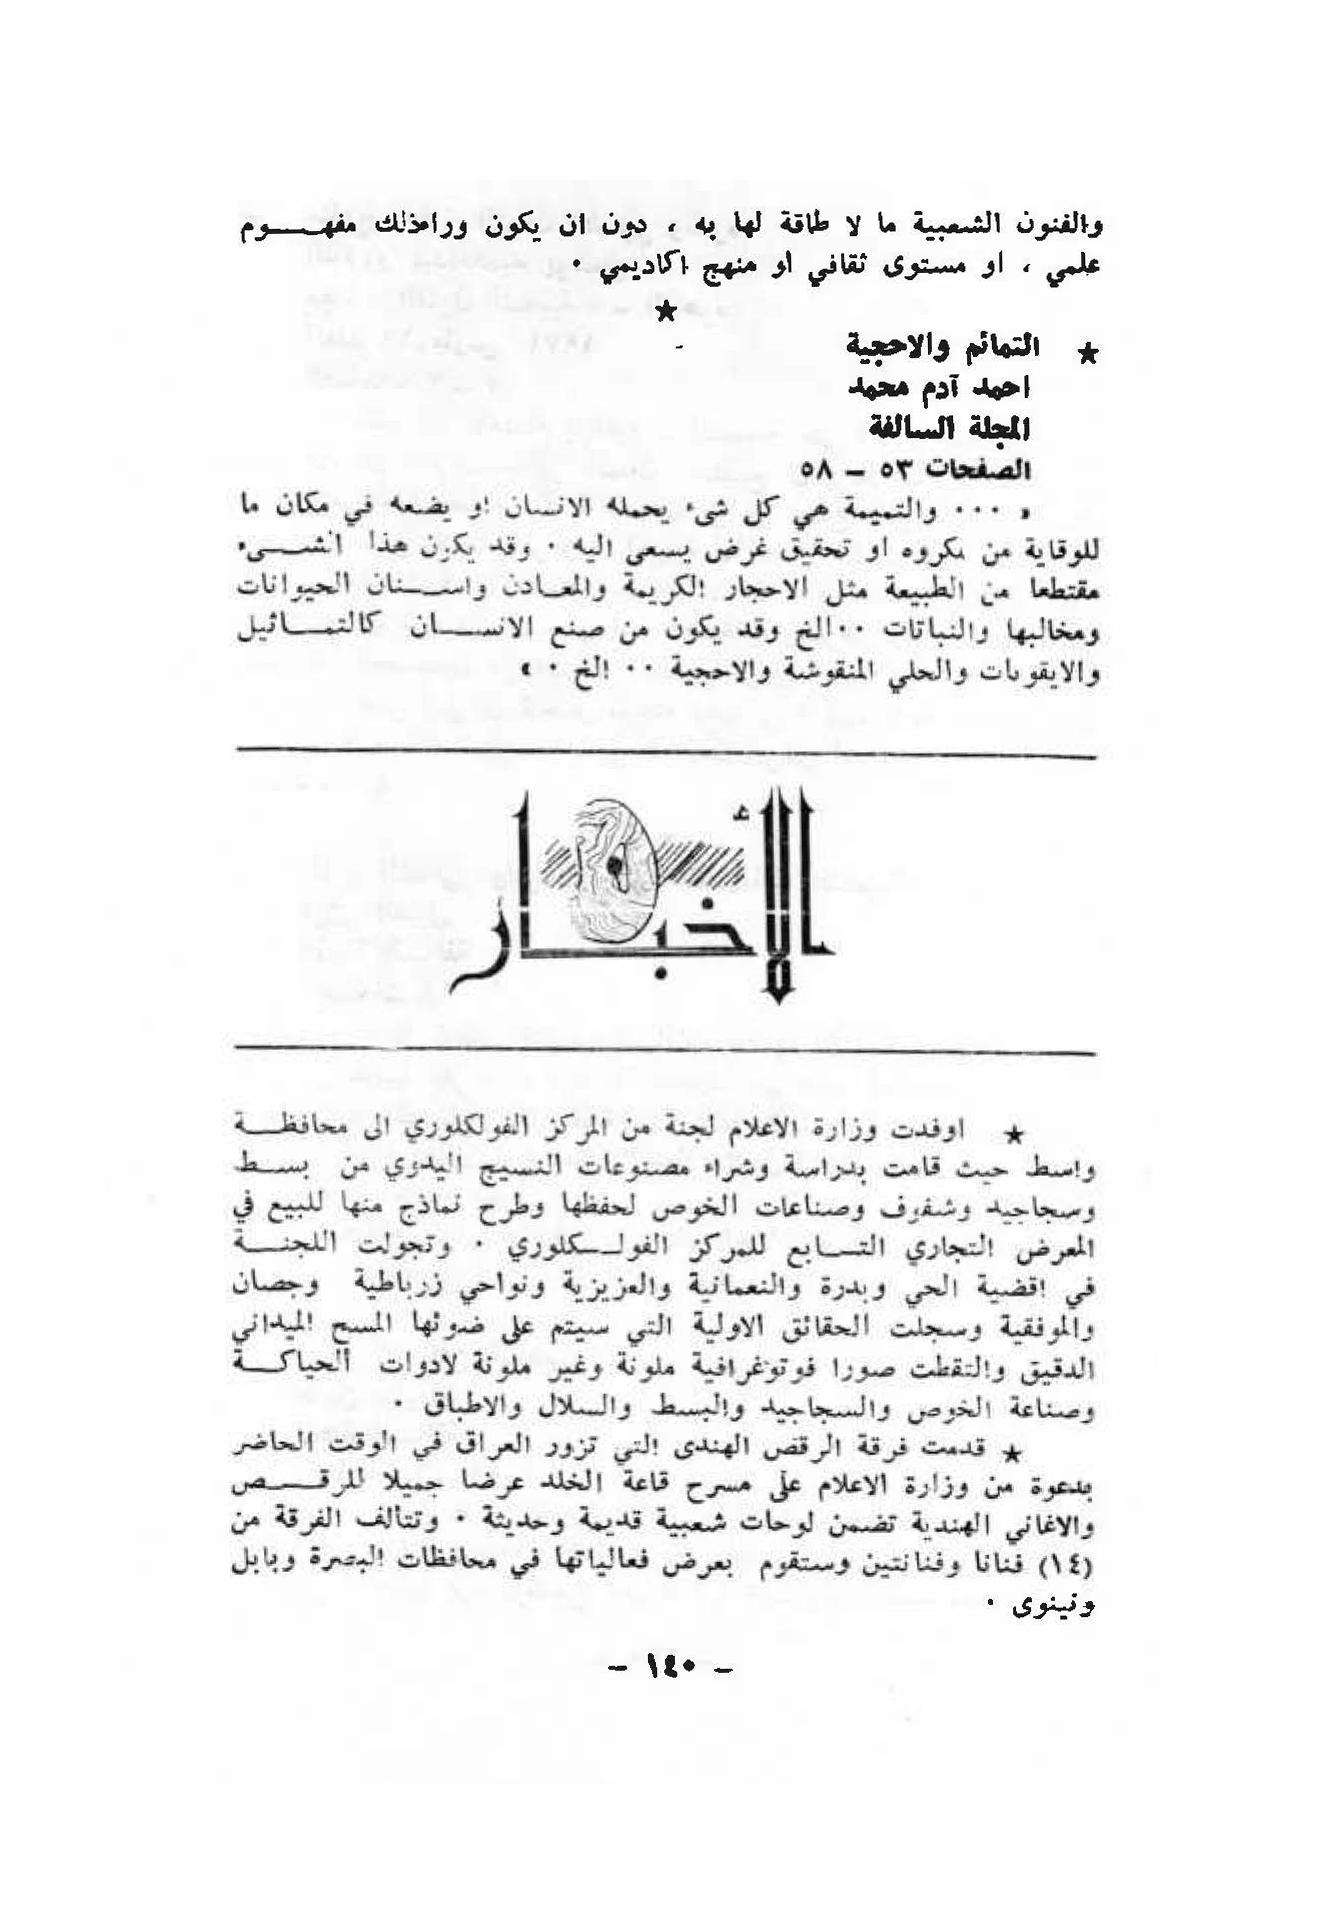 والفنون الشعبية ما لا طاقة لها به ، دون ان يكون وراءذلك مفهـــوم
علمي ، او مستوى ثقافي او منهج اكاديمي ٠
★
★ التمائم والاحجية
احمد آدم محمد
المجلة السالفة
الصفحات ٥٣ – ٥٨
« ٠٠٠ والتميمة هي كل شيء يحمله الانسان او يضعه في مكان ما
للوقاية من مكروه او تحقيق غرض يسعى اليه ٠ وقد يكون هذا الشـــيء
مقتطعا من الطبيعة مثل الاحجار الكريمة والمعـادن واســنان الحيوانات
ومخالبها والنباتات ٠٠الخ وقد يكون من صنع الانســـان كالتمـــاثيل
والايقونات والحلي المنقوشة والاحجية ٠٠ الخ ٠ »
الأخبار
★ اوفدت وزارة الاعلام لجنة من المركز الفولكلوري الى محافظـــة
واسط حيث قامت بدراسة وشراء مصنوعات النسيج اليدوي من بســـط
وسجاجيد وشفوف وصناعات الخوص لحفظها وطرح نماذج منها للبيع في
المعرض التجاري التـــابع للمركز الفولـــكلوري ٠ وتجولت اللجنـــة
في اقضية الحي وبدرة والنعمانية والعزيزية ونواحي زرباطية وجصان
والموفقية وسجلت الحقائق الاولية التي سيتم على ضوئها المسح الميداني
الدقيق والتقطت صورا فوتوغرافية ملونة وغير ملونة لادوات الحياكـــة
وصناعة الخوص والسجاجيد والبسط والسلال والاطباق ٠
★ قدمت فرقة الرقص الهندى التي تزور العراق في الوقت الحاضر
بدعوة من وزارة الاعلام على مسرح قاعة الخلد عرضا جميلا للرقـــص
والاغاني الهندية تضمن لوحات شعبية قديمة وحديثة ٠ وتتألف الفرقة من
(١٤) فنانا وفنانتين وستقوم بعرض فعالياتها في محافظات البصرة وبابل
ونينوى ٠
– ١٤٠ –